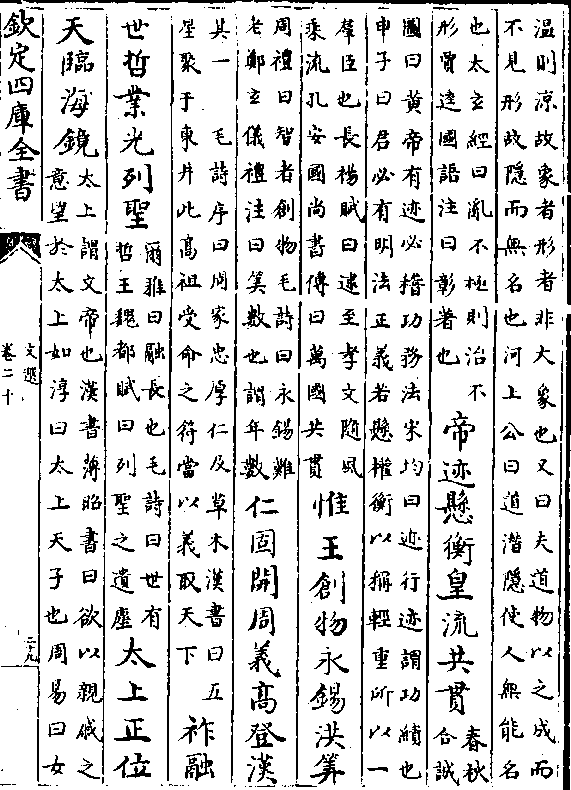 温則凉故象者形者非大象也又曰夫道物以之成而
不見形故隱而無名也河上公曰道潛隱使人無能名
也太玄經曰亂不極則治不
形賈逵國語注曰彰著也
帝迹懸衡皇流共貫
春秋
合誠
圖曰黃帝有迹必稽功務法宋均曰迹行迹謂功績也
申子曰君必有明法正義若懸權衡以稱輕重所以一
羣臣也長楊賦曰逮至孝文隨風
乘流孔安國尚書傳曰萬國共貫
惟王創物永錫洪筭
周禮曰智者創物毛詩曰永錫難
老鄭玄儀禮注曰筭數也謂年數
仁固開周義高登漢
其一 毛詩序曰周家忠厚仁及草木漢書曰五
星聚于東井此高祖受命之符當以義取天下
祚融
世哲業光列聖
爾雅曰融長也毛詩曰世有
哲王魏都賦曰列聖之遺塵
太上正位
天臨海鏡
太上謂文帝也漢書薄昭書曰欲以親戚之
意望於太上如淳曰太上天子也周易曰女
欽定四庫全書
文選
卷二十
二十九